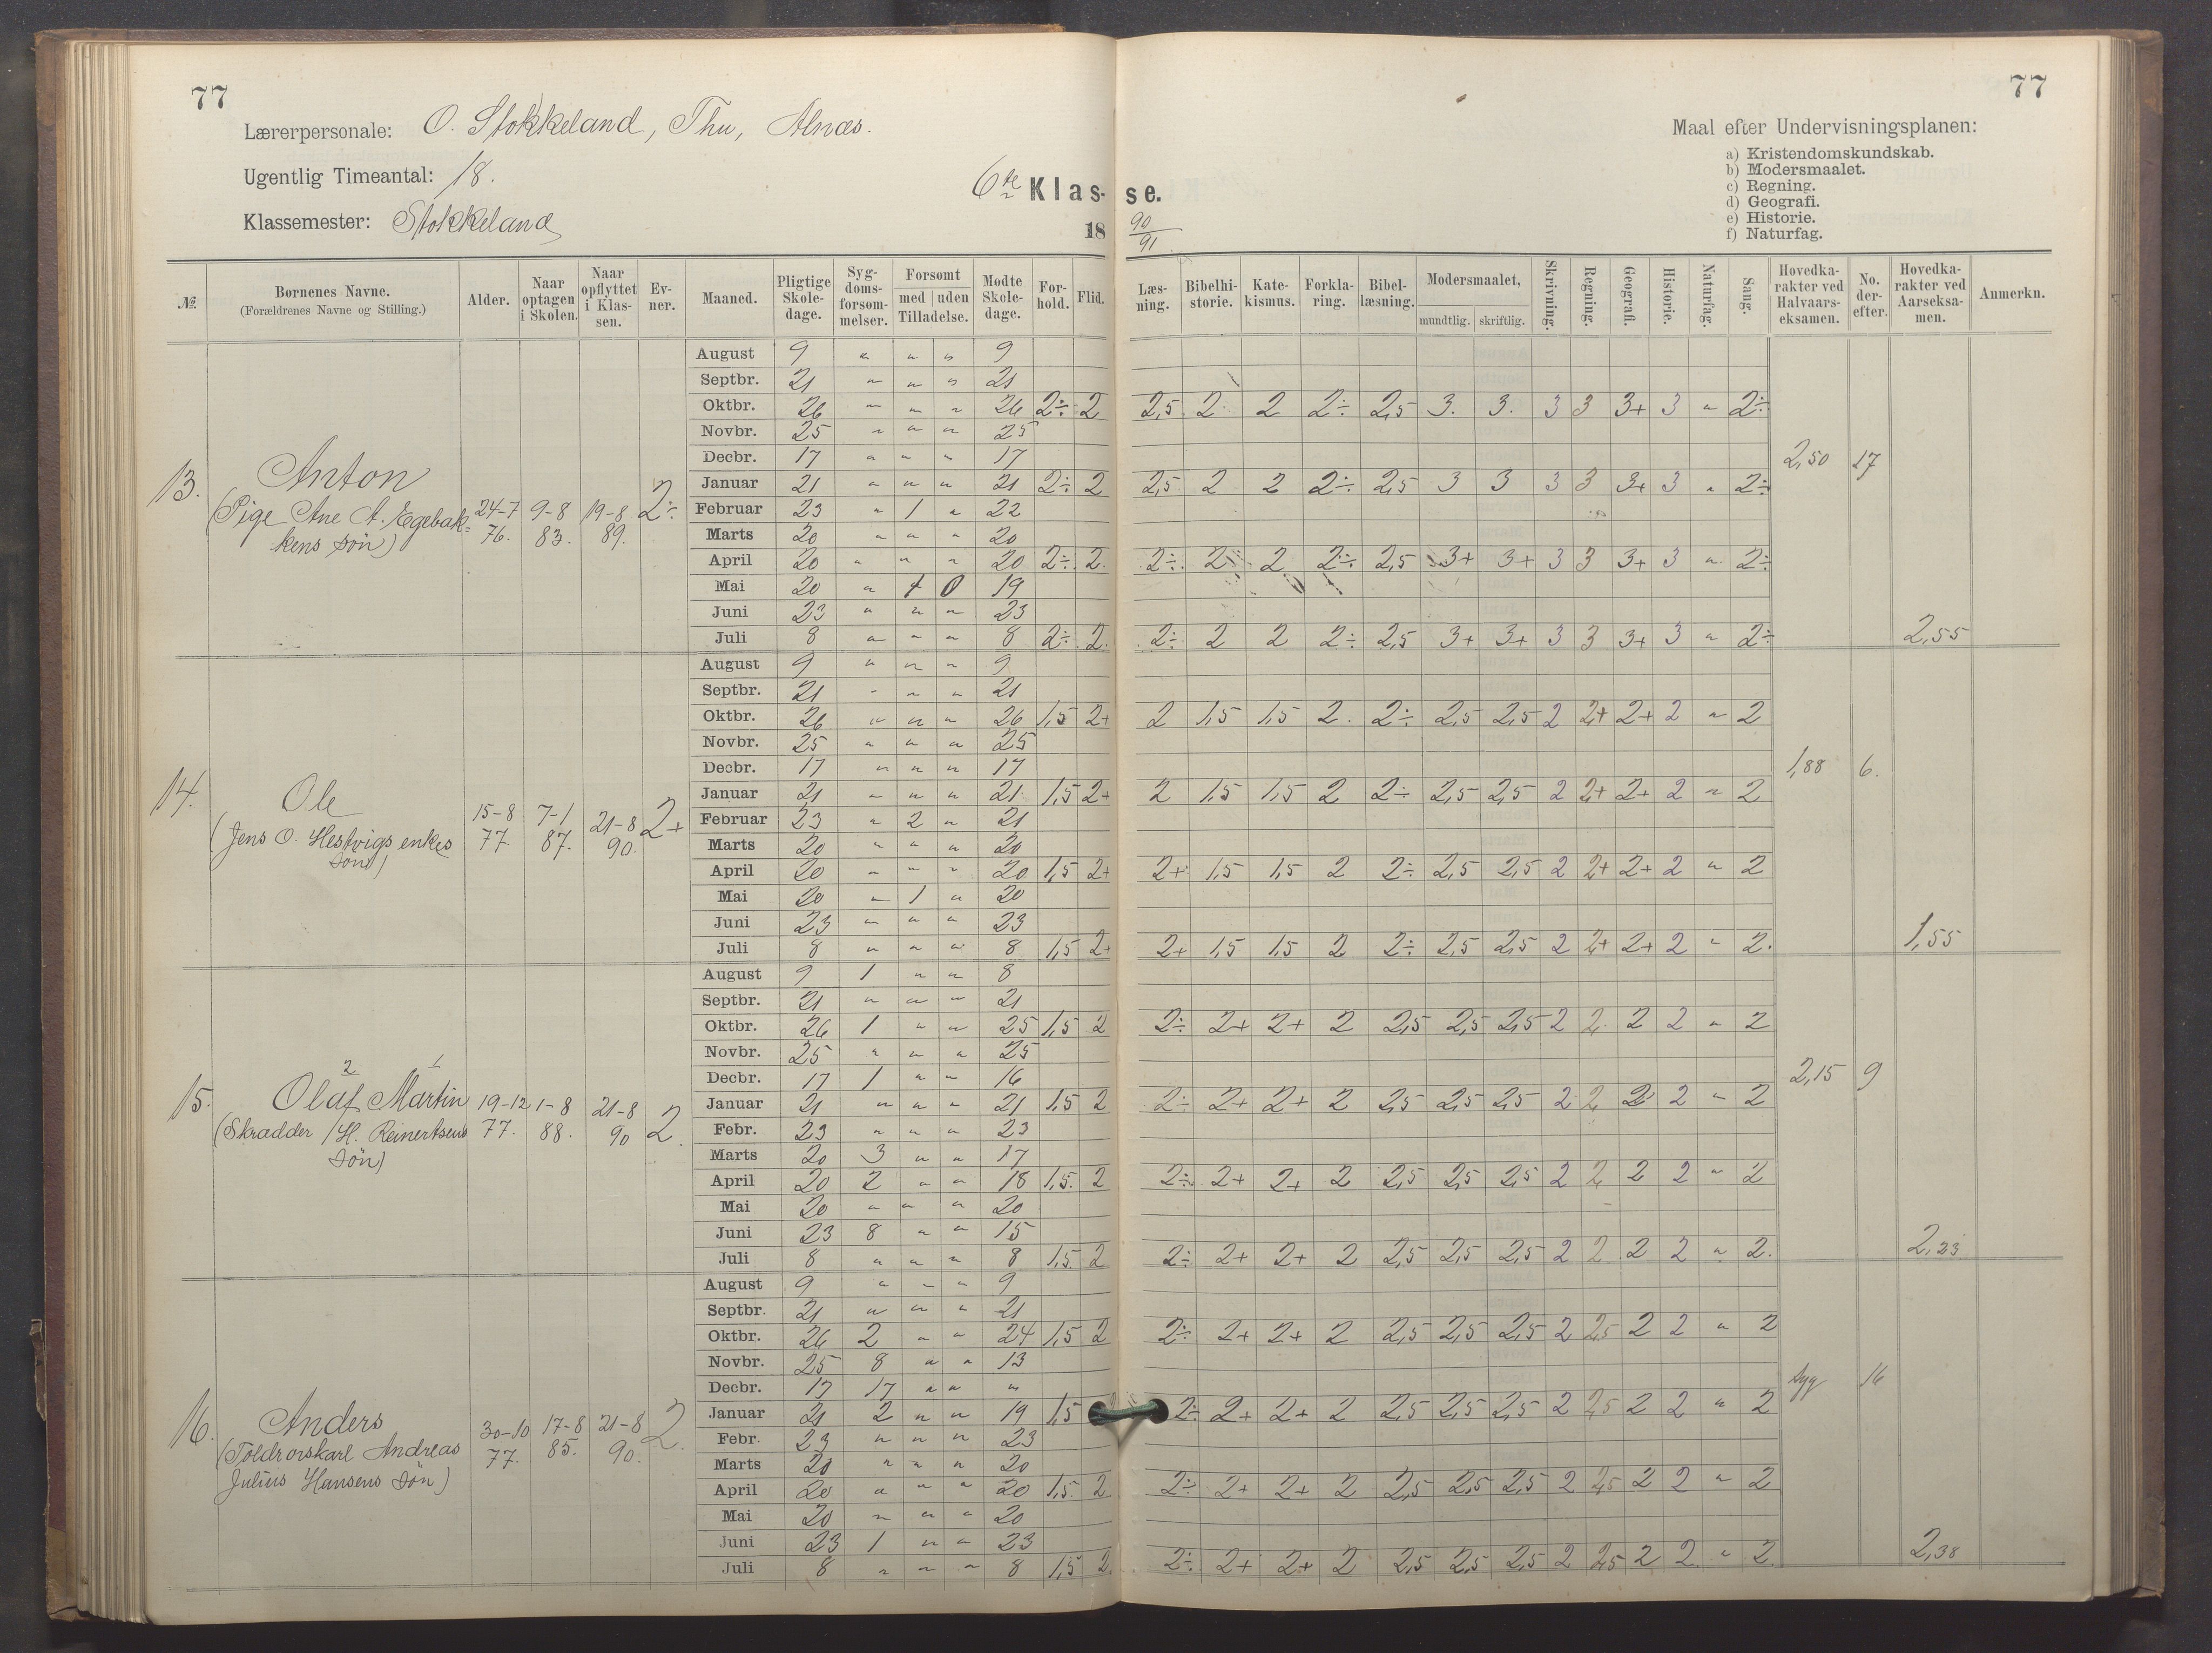 77
77
Lærerpersonale: O. Stokkeland, Thu, Alnæs.
Ugentlig Timeantal: 18.
Klassemester: Stokkeland
6te Klas- se.
18 90/91
Maal efter Undervisningsplanen:
a) Kristendomskundskab.
b) Modersmaalet.
c) Regning.
d) Geografi.
e) Historie.
f) Naturfag.
№. Børnenes Navne. (Forældrenes Navne og Stilling.) Alder. Naar optagen i Skolen. Naar opflyttet i Klassen. Evner. Maaned. Pligtige Skoledage. Sygdomsforsømmelser. Forsømt med uden Tilladelse. Mødte Skoledage. Forhold. Flid. Læsning. Bibelhistorie. Katekismus. Forklaring. Bibellæsning. Modersmaalet, mundtlig. skriftlig. Skrivning. Regning. Geografi. Historie. Naturfag. Sang. Hovedkarakter ved Halvaarseksamen. No. derefter. Hovedkarakter ved Aarseksamen. Anmerkn.
13. Anton
(Pige Ane A. Egebakkens søn)
24-7 76. 9-8 83. 19-8 89. 2÷
August 9 " " " 9
Septbr. 21 " " " 21
Oktbr. 26 " " " 26 2÷ 2 2,5 2 2 2÷ 2,5 3. 3. 3 3 3+ 3 " 2÷
Novbr. 25 " " " 25
Decbr. 17 " " " 17 2,50 17
Januar 21 " " " 21 2÷ 2 2,5 2 2 2÷ 2,5 3 3 3 3 3+ 3 " 2÷
Februar 23 " 1 " 22
Marts 20 " " " 20
April 20 " " " 20 2÷ 2. 2÷ 2 2 2÷ 2,5 3+ 3+ 3 3 3+ 3 " 2÷
Mai 20 " 1 0 19
Juni 23 " " " 23
Juli 8 " " " 8 2÷ 2. 2÷ 2 2 2÷ 2,5 3+ 3+ 3 3 3+ 3 " 2÷ 2,55
14. Ole
(Jens O. Hestvigs enkes søn)
15-8 77. 7-1 87. 21-8 90. 2+
August 9 " " " 9
Septbr. 21 " " " 21
Oktbr. 26 " " " 26 1,5 2+ 2 1,5 1,5 2. 2÷ 2,5 2,5 2 2+ 2+ 2 " 2
Novbr. 25 " " " 25
Decbr. 17 " " " 17 1,88 6.
Januar 21 " " " 21 1,5 2+ 2 1,5 1,5 2 2÷ 2,5 2,5 2 2+ 2+ 2 " 2
Februar 23 " 2 " 21
Marts 20 " " " 20
April 20 " " " 20 1,5 2+ 2+ 1,5 1,5 2 2÷ 2,5 2,5 2 2+ 2+ 2 " 2
Mai 20 " 1 " 20
Juni 23 " " " 23
Juli 8 " " " 8 1,5 2+ 2+ 1,5 1,5 2 2÷ 2,5 2,5 2 2+ 2+ 2 " 2. 1,55
15. Olaf 2 Martin 1
(Skrædder H. Reinertsens søn)
19-12 77. 1-8 88. 21-8 90 2.
August 9 1 " " 8
Septbr. 21 " " " 21
Oktbr. 26 1 " " 25 1,5 2 2÷ 2+ 2+ 2 2,5 2,5 2,5 2 2 2 2 " 2
Novbr. 25 " " " 25
Decbr. 17 1 " " 16 2,15 9
Januar 21 " " " 21 1,5 2 2÷ 2+ 2+ 2 2,5 2,5 2,5 2 2 2 2 " 2
Febr. 23 " " " 23
Marts 20 3 " " 17
April 20 2 " " 18 1,5. 2 2÷ 2+ 2+ 2 2,5 2,5 2,5 2 2 2 2 " 2
Mai 20 " " " 20
Juni 23 8 " " 15
Juli 8 " " " 8 1,5. 2 2÷ 2+ 2+ 2 2,5 2,5 2,5 2 2 2 2 " 2. 2,23
16. Anders
(Toldrorskarl Andreas
Julius Hansens søn)
30-10 77. 17-8 85. 21-8 90. 2.
August 9 " " " 9
Septbr. 21 " " " 21
Oktbr. 26 2 " " 24 1,5 2 2÷ 2+ 2+ 2 2,5 2,5 2,5 2 2,5 2 2 " 2
Novbr. 25 8 " " 13
Decbr. 17 17 " " " syg 16
Januar 21 2 " " 19 1,5 2÷ 2+ 2+ 2 2,5 2,5 2,5 2 2,5 2 2 " 2
Febr. 23 " " " 23
Marts 20 " " " 20
April 20 " " " 20 1,5. 2 2÷ 2+ 2+ 2 2,5 2,5 2,5 2 2,5 2 2 " 2
Mai 20 " " " 20
Juni 23 1 " " 23
Juli 8 " " " 8 1,5 2. 2÷ 2+ 2+ 2 2,5 2,5 2,5 2 2,5 2 2 " 2. 2,38